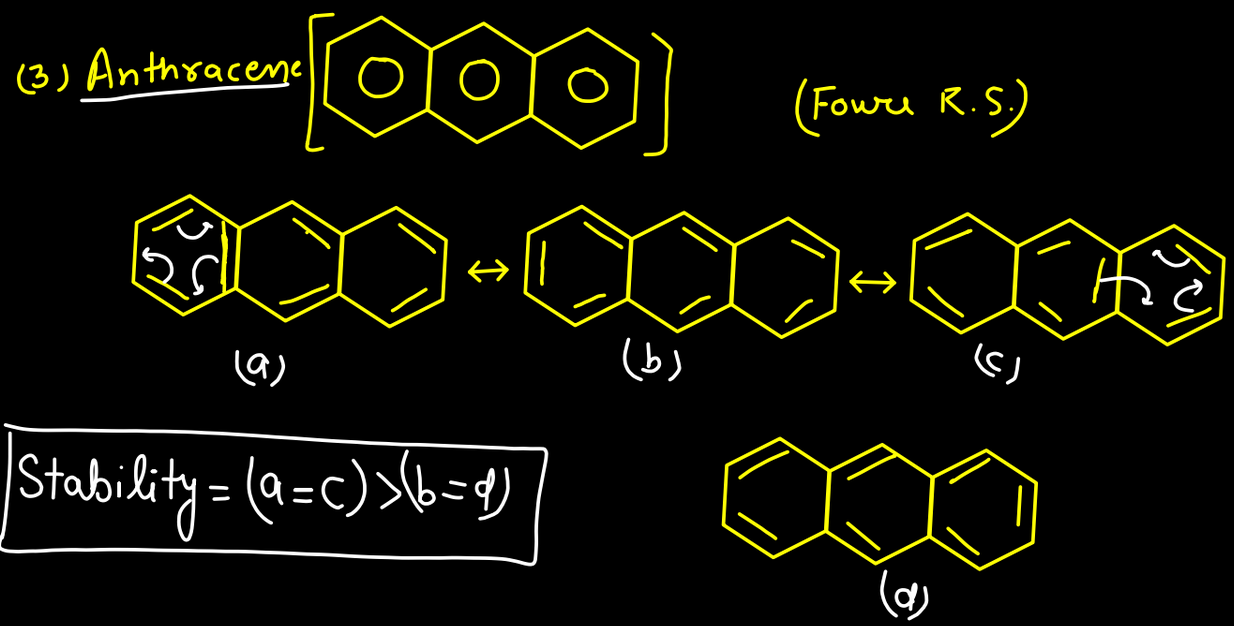 (3) Anthracene
(Foure R.S.)
(a)
(b)
(c)
Stability = (a=c) > (b=d)
(d)